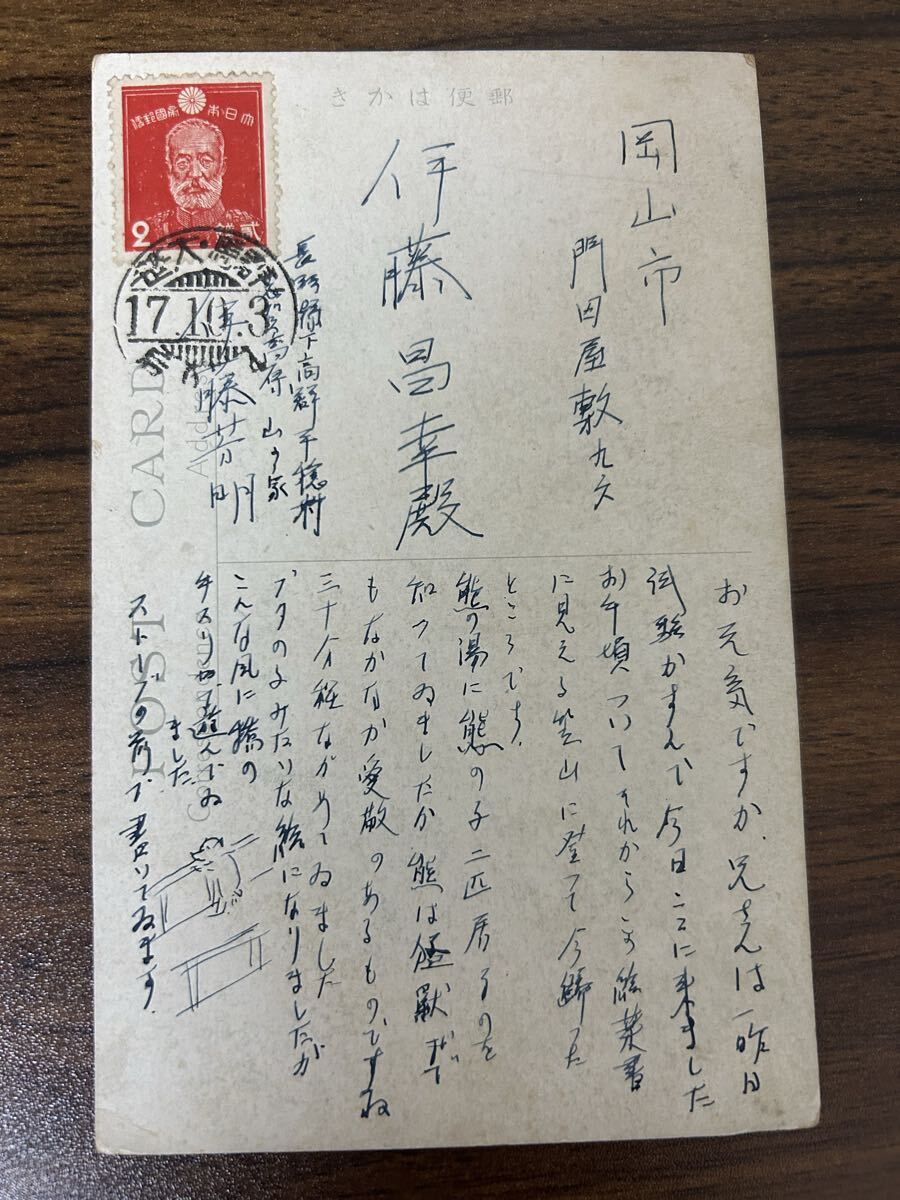 きかは便郵
大日本帝國郵便
2
17.10.3
岡山市
門田屋敷九六
伊藤昌幸殿
長野縣下高井郡平穏村
志賀高原 山の家
伊藤昔明
POST CARD
お元気ですか.兄さんは一昨日
試験がすんで今日ここに来ました
お午頃ついてそれからこの絵葉書
に見える笠山に登って今帰った
ところです.
熊の湯に熊の子二匹居るのを
知ってゐましたか 熊は怪獣だて
もなかなか愛敬のあるものですね
三十分程ながめてゐました
ブタの子みたいな絵になりましたが
こんな風に橋の
テスリで遊んでゐ
ました
ストーブの前で書いてゐます.